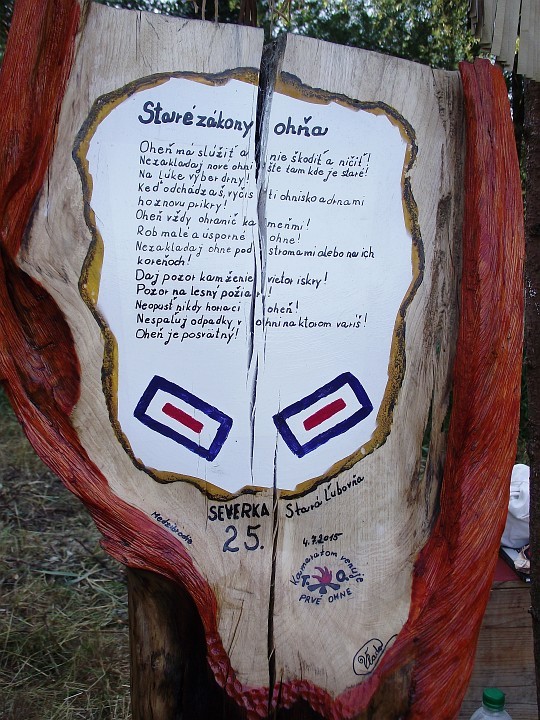 Staré zákony ohňa
Oheň má slúžiť a nie škodiť a ničiť!
Nezakladaj nové ohnište tam kde je staré!
Na lúke vyber drny!
Keď odchádzaš, vyčisti ohnisko a drnami
ho znovu prikry!
Oheň vždy ohranič kameňmi!
Rob malé a úsporné ohne!
Nezakladaj ohne pod stromami alebo na ich
koreňoch!
Daj pozor kam ženie vietor iskry!
Pozor na lesný požiar!
Neopusť nikdy horiaci oheň!
Nespaľuj odpadky v ohni na ktorom varíš!
Oheň je posvätný!
SEVERKA Stará Ľubovňa
25.
Medzibrodie
4.7.2015
Kamarátom venuje
T.O.
PRVÉ OHNE